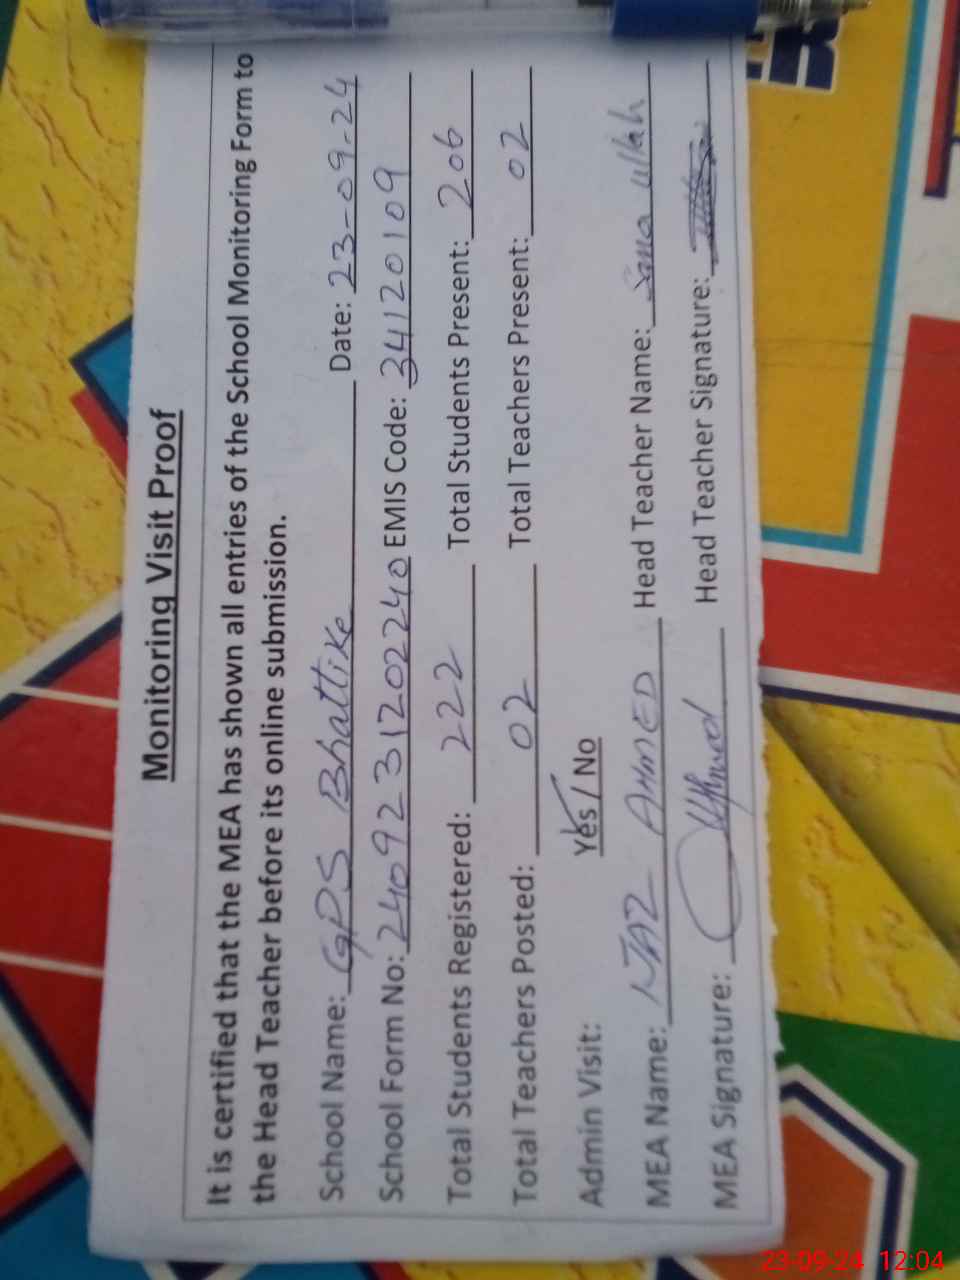 Monitoring Visit Proof
It is certified that the MEA has shown all entries of the School Monitoring Form to
the Head Teacher before its online submission.
School Name: GPS Bhattike Date: 23-09-24
School Form No: 2409231202240 EMIS Code: 34120109
Total Students Registered: 222 Total Students Present: 206
Total Teachers Posted: 02 Total Teachers Present: 02
Admin Visit: Yes / No
MEA Name: NIAZ AHMED Head Teacher Name: Sana ullah
MEA Signature: Head Teacher Signature:
23-09-24 12:04